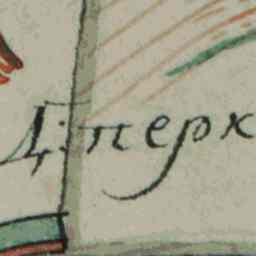 Д: перк